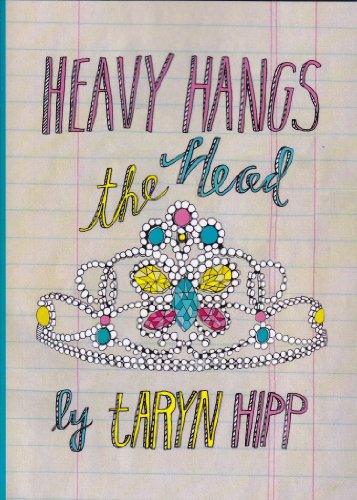 HEAVY HANGS
the Head
by tARYN HIPP